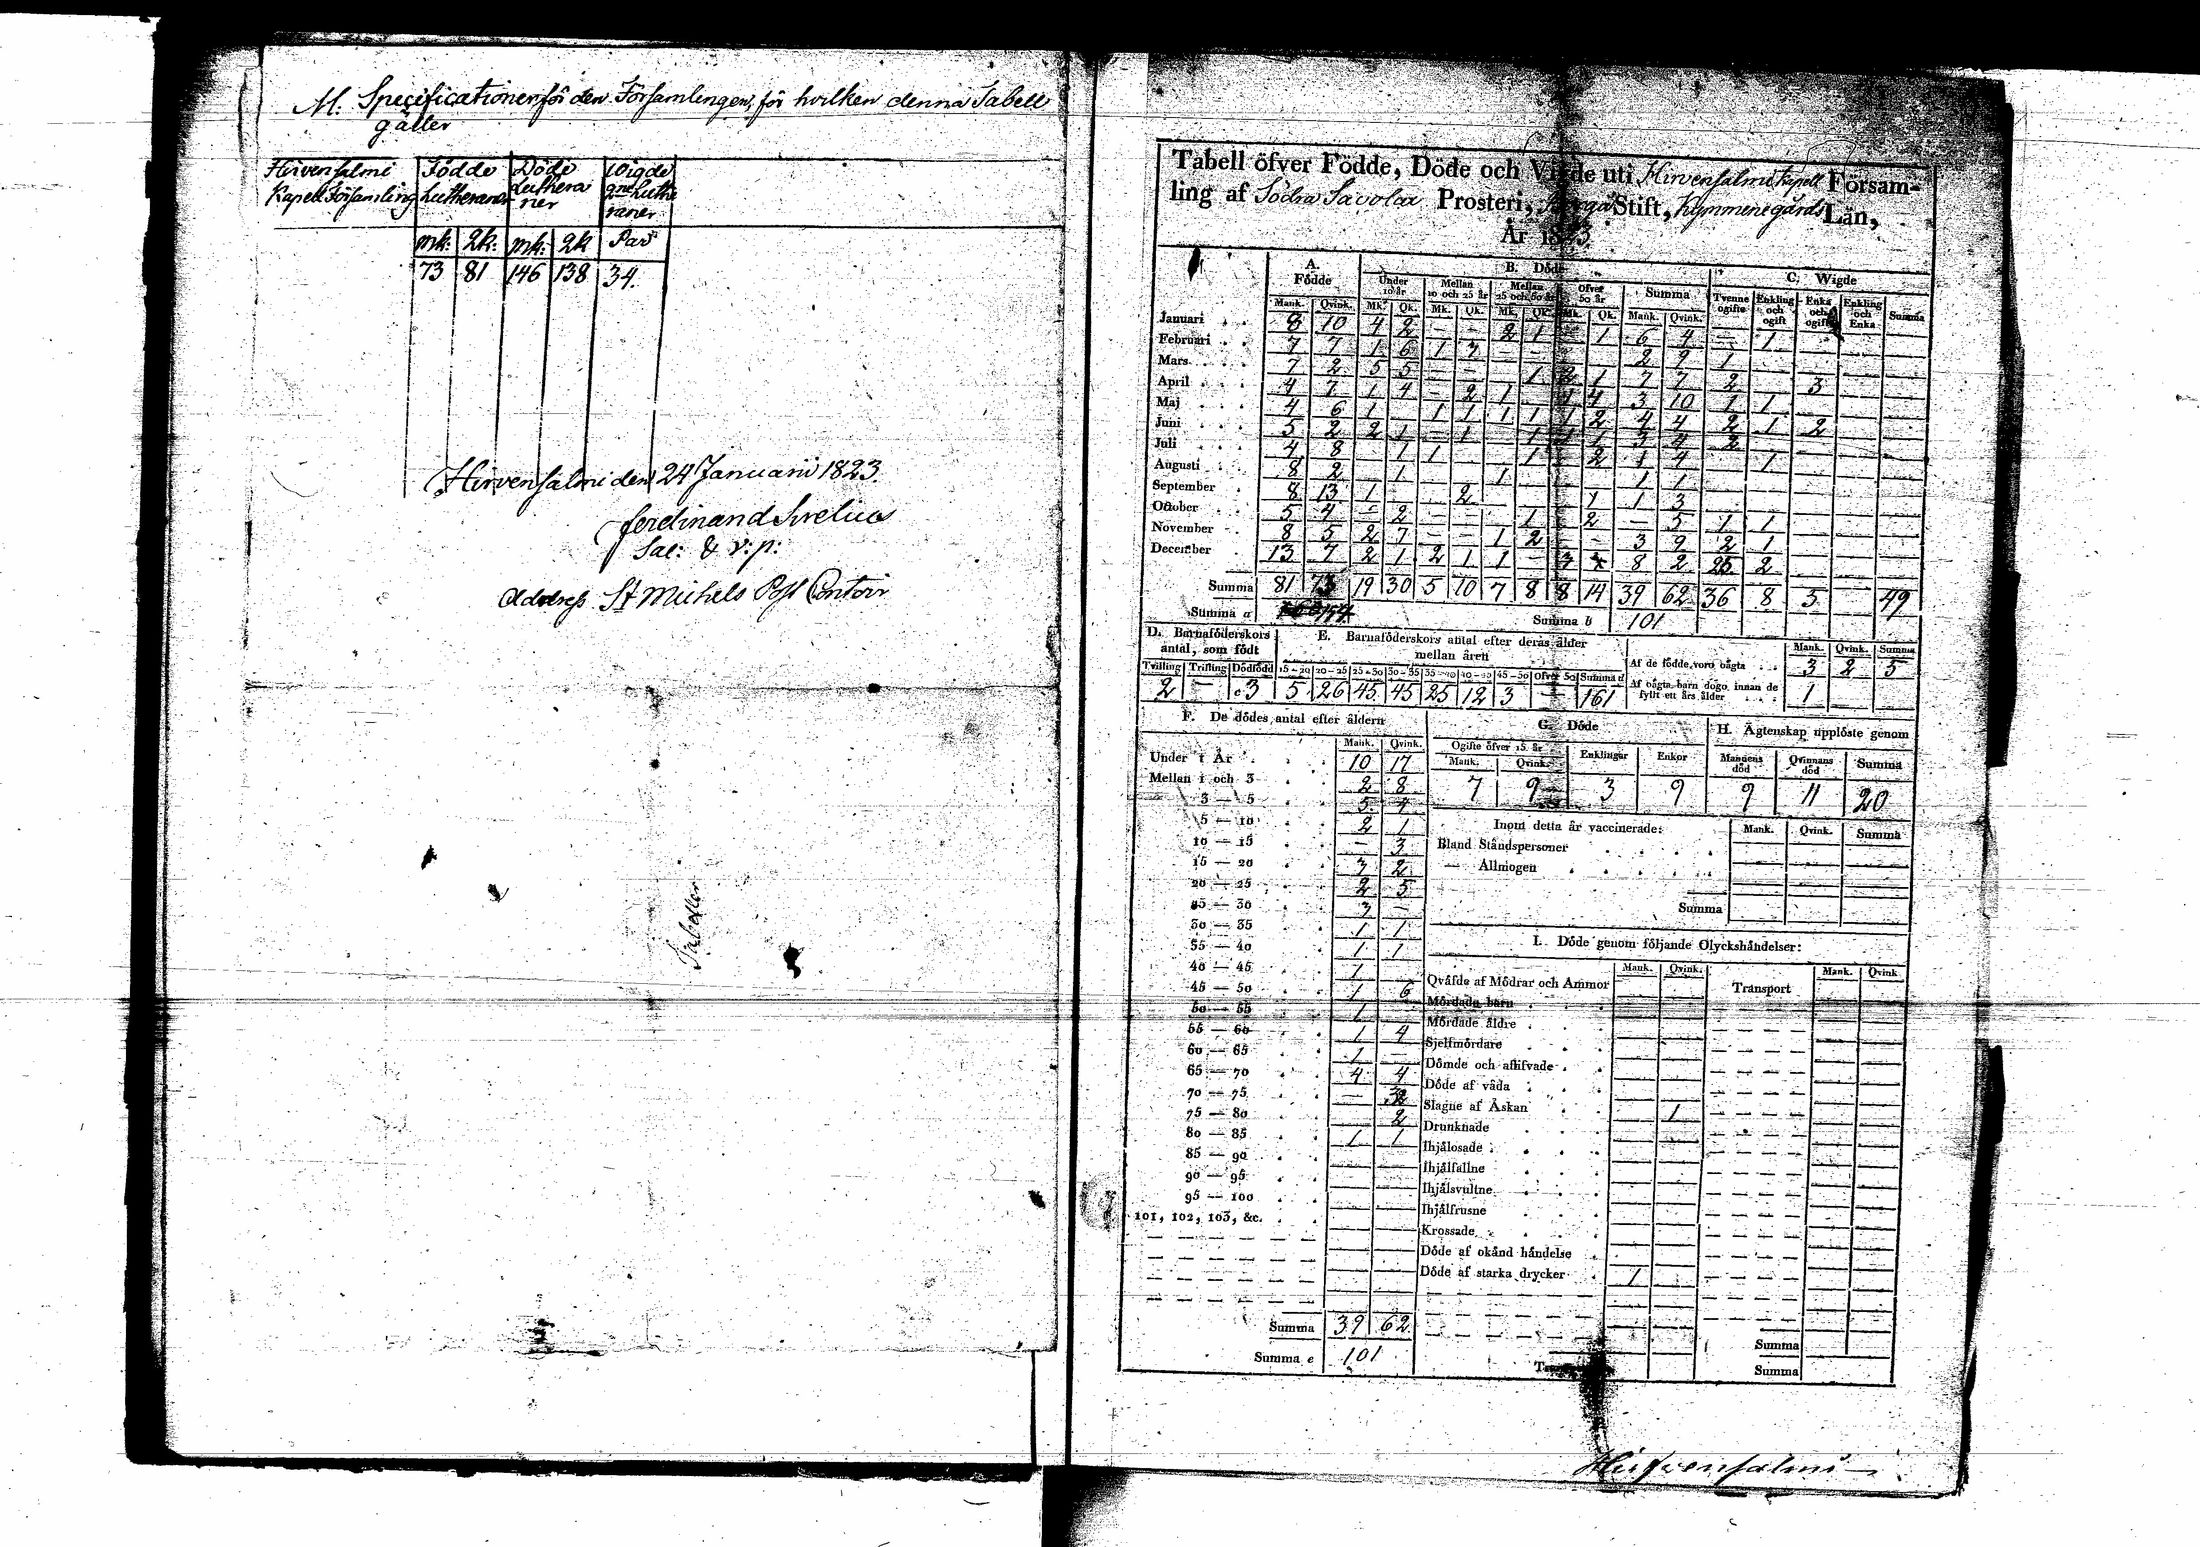 M. Specificationer för den Församlingen, för hvilken denna Tabell
gäller
Hirvensalmi Födde Döde Wigde
Kapell Församling Lutheraner Lutheraner Luthe
raner
mk: 2k: mk: 2k Par
73 81 146 138 34.
Hirvensalmi den 24 Januarii 1823.
Ferdinand Sirelius
Sac: & v: p:
Address St Michels Post Contoir
Tabeller
Tabell öfver Födde, Döde och Vigde uti Hirvensalmi Kapell Försam-
ling af Södra Savolax Prosteri, Stift, Kymmenegårds Län,
År 1823.
A. Födde B. Döde C. Wigde
Under 10 år Mellan 10 och 25 år Mellan 25 och 50 år Öfver 50 år Summa Tvenne ogifte Enkling och ogift Enka och ogift Enkling och Enka Summa
Mank. Qvink. Mk. Qk. Mk. Qk. Mk. Qk. Mk. Qk. Mank. Qvink.
Januari 8 10 4 2 — — 2 1 — 1 6 4 — 1
Februari 7 7 1 6 1 3 — — — — 2 9 1
Mars 7 2 5 5 — — — 1 2 1 7 7 2 3
April 4 7 1 4 — 2 1 — 1 4 3 10 1 1
Maj 4 6 1 1 1 1 1 1 2 4 4 2 1 2
Juni 5 2 2 1 — 1 — 1 1 1 3 4 2
Juli 4 8 — 1 1 1 — 2 1 4 1
Augusti 8 2 — 1 1 1 1
September 8 13 1 — — 2 1 1 3
October 5 4 — 2 — — 1 — 2 — 5 1 1
November 8 5 2 7 — — 1 2 — — 3 9 2 1
December 13 7 2 1 2 1 1 — 3 8 2 25 2
Summa 81 73 19 30 5 10 7 8 8 14 39 62 36 8 3 49
Summa a 154 Summa b 101
D. Barnaföderskors antal, som födt
Tvilling Trilling Dödfödd
2 — 3
E. Barnaföderskors antal efter deras ålder mellan åren
15—20 20—25 25—30 30—35 35—40 40—45 45—50 Öfver 50 Summa d
5 26 45 45 25 12 3 — 161
Mank. Qvink. Summa
Af de födde voro oägta 3 2 5
Af oägta barn dogo innan de fyllt ett års ålder 1
F. De dödes antal efter åldern
Mank. Qvink.
Under 1 År 10 17
Mellan 1 och 3 2 8
3 — 5 5 4
5 — 10 2 1
10 — 15 — 3
15 — 20 3 2
20 — 25 2 5
25 — 30 3 —
30 — 35 1 1
35 — 40 1 1
40 — 45 1 —
45 — 50 1 6
50 — 55 1
55 — 60 1 4
60 — 65 1 —
65 — 70 4 4
70 — 75 —
75 — 80 2
80 — 85 1 1
85 — 90
90 — 95
95 — 100
101, 102, 103, &c.
Summa 39 62
Summa e 101
G. Döde
Ogifte öfver 15 år Enklingar Enkor
Mank. Qvink.
7 9 3 9
H. Ägtenskap upplöste genom
Mannens död Qvinnans död Summa
9 11 20
Inom detta år vaccinerade: Mank. Qvink. Summa
Bland Ståndspersoner
— Allmogen
Summa
I. Döde genom följande Olyckshändelser:
Mank. Qvink. Mank. Qvink.
Qväfde af Mödrar och Ammor Transport
Mördade barn
Mördade äldre
Sjelfmördare
Dömde och aflifvade
Döde af våda
Slagne af Åskan 1
Drunknade
Ihjälosade
Ihjälfallne
Ihjälsvultne
Ihjälfrusne
Krossade
Döde af okänd händelse
Döde af starka drycker 1
Summa
Summa
Hirfvensalmi